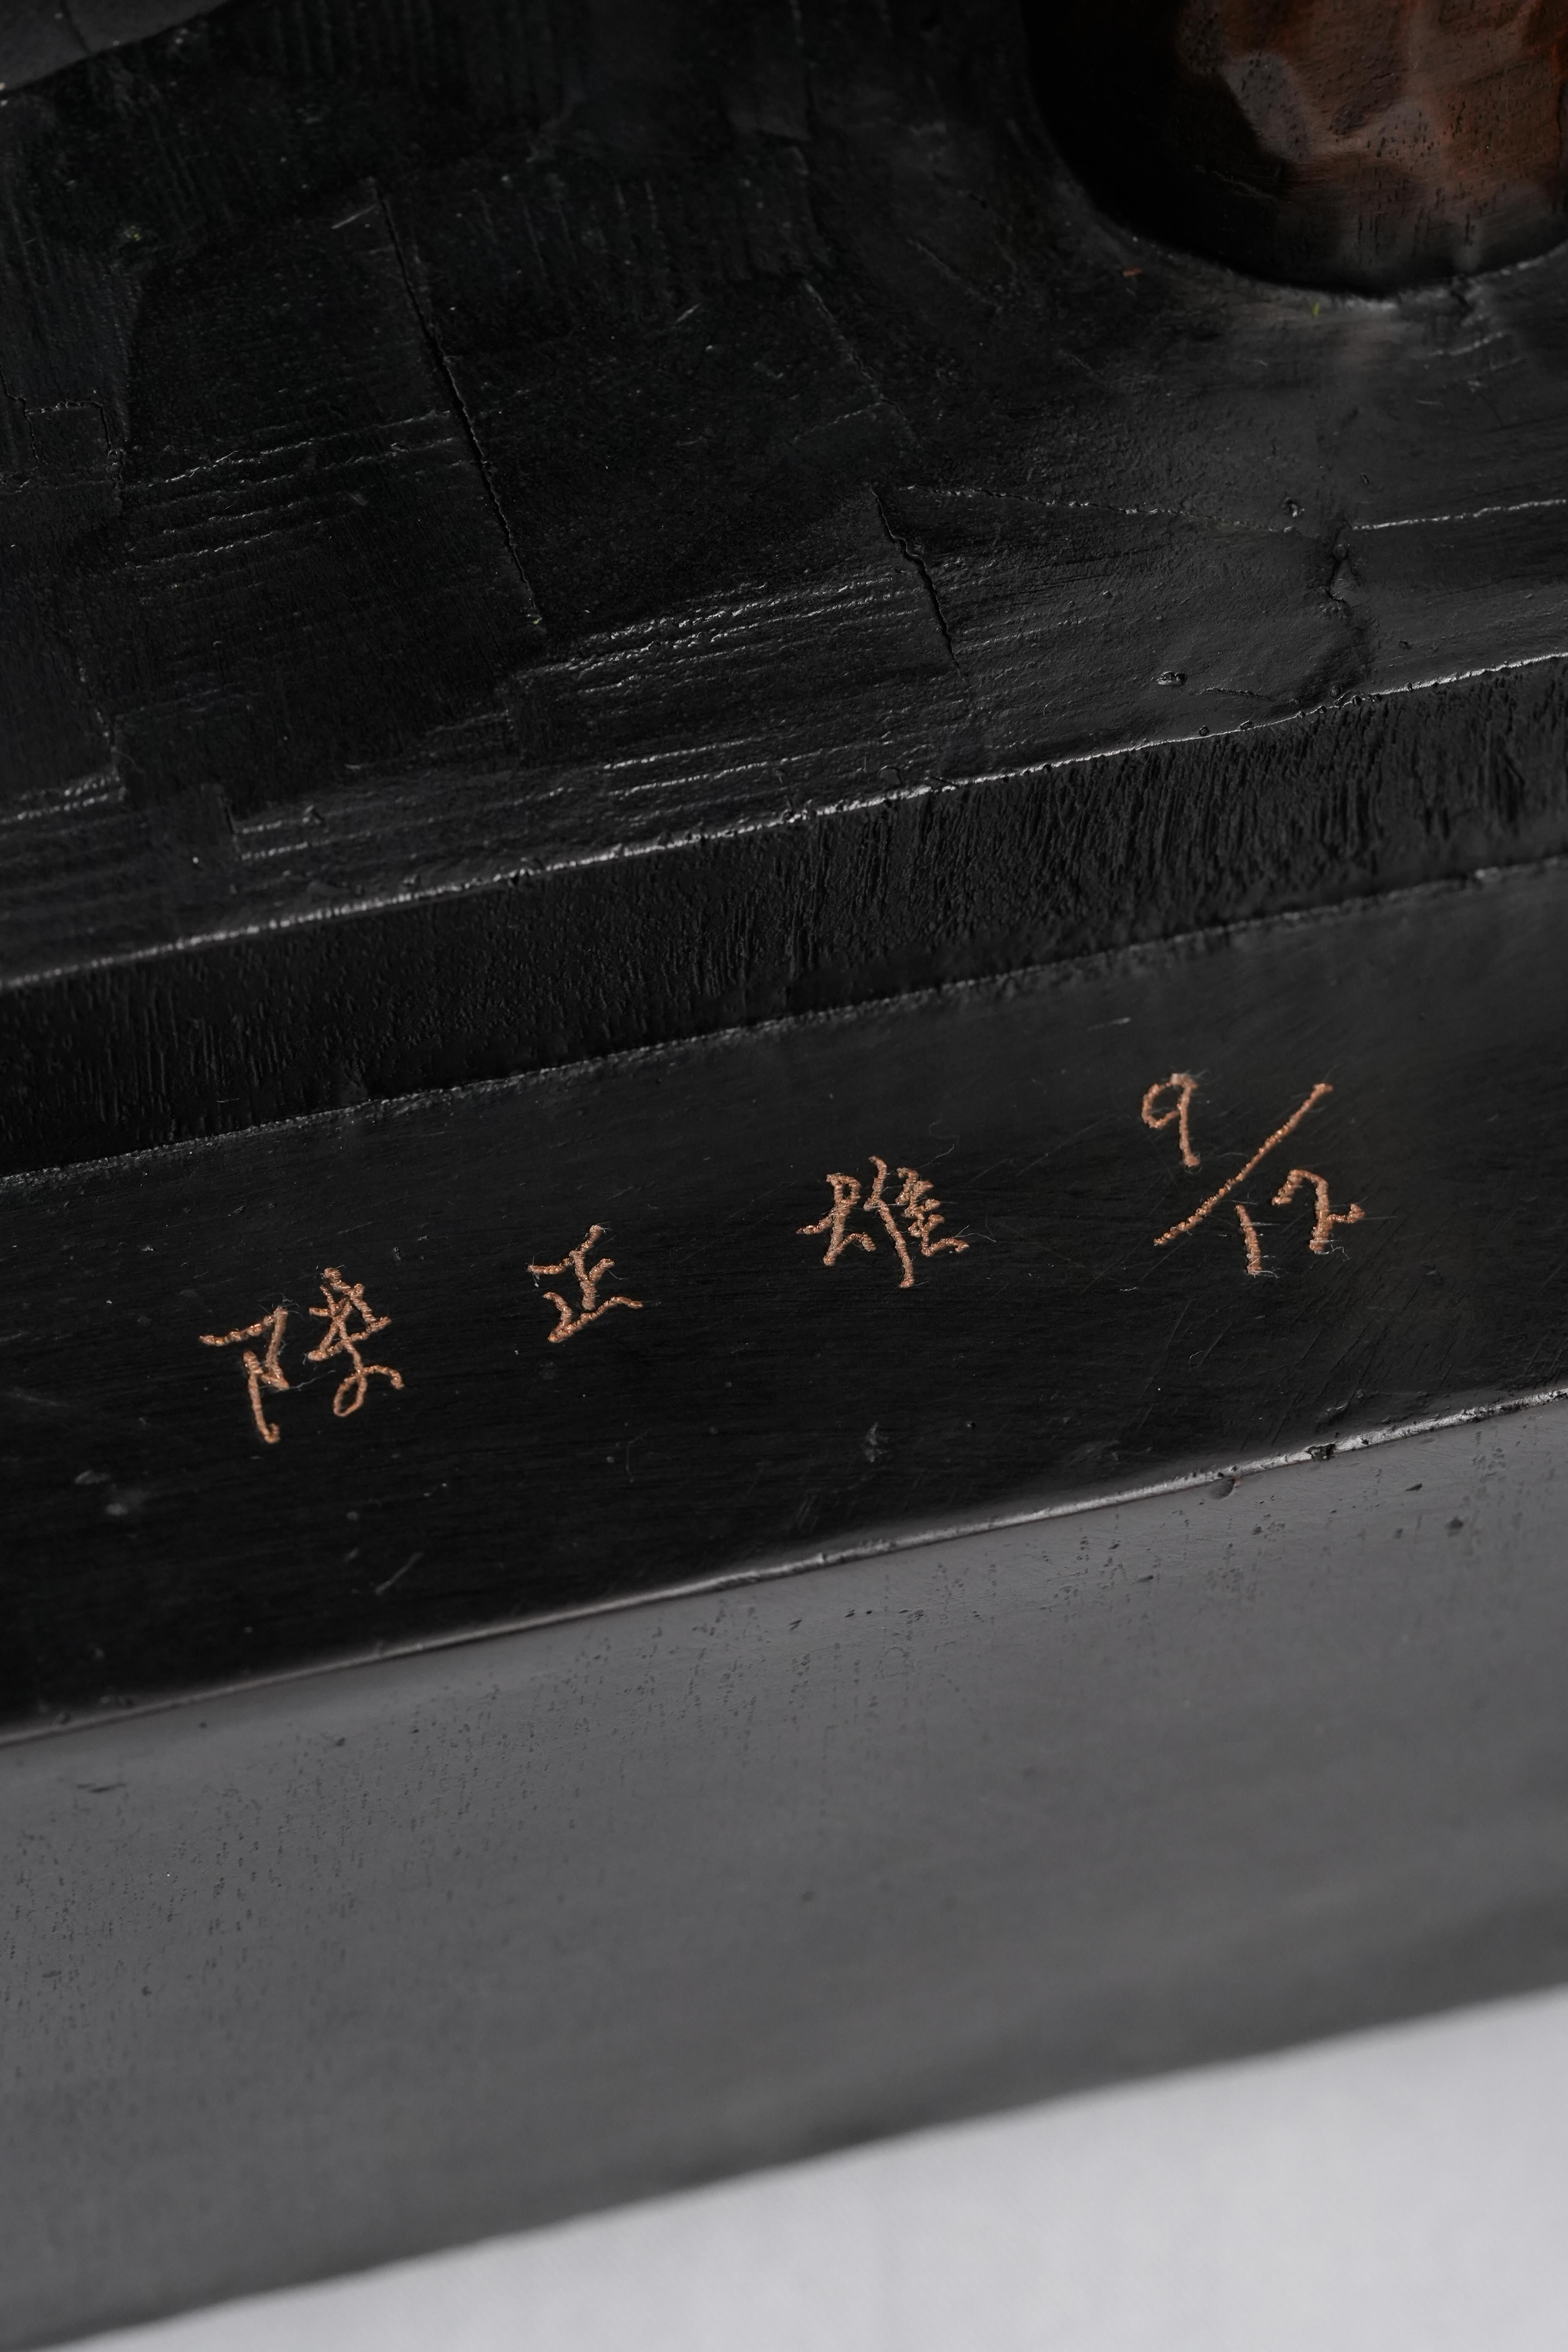 陳正雄 9/12